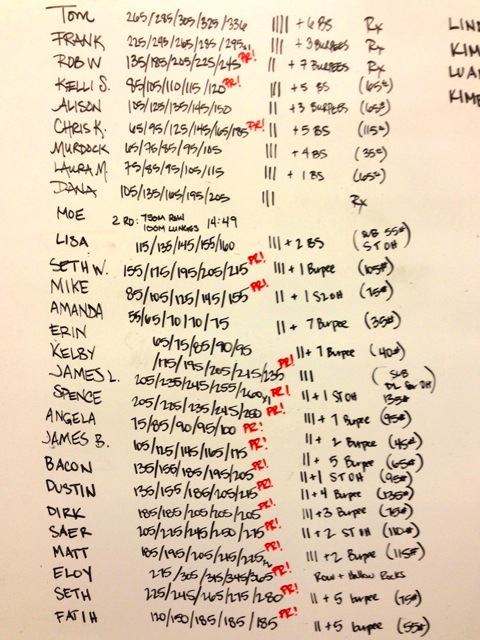 TOM 265/285/305/325/336 |||| + 6 BS Rx
FRANK 225/245/265/285/295x1 ||| + 3 BURPEES Rx
ROB W 135/185/205/225/245 PR! || + 7 BURPEES Rx
KELLI S. 85/105/110/115/120 PR! ||| + 5 BS (65#)
ALISON 105/125/135/145/150 || + 3 BURPEES (65#)
CHRIS K. 65/95/125/145/165/185 PR! || + 5 BS (115#)
MURDOCK 65/75/85/95/105 ||| + 4 BS (35#)
LAURA M. 75/85/95/105/115 || + 1 BS (65#)
DANA 105/135/165/195/205 ||| Rx
MOE 2 RD: 750M ROW 14:49
100M LUNGES
LISA 115/135/145/155/160 ||| + 2 BS (SUB 55# STOH)
SETH W. 155/175/195/205/215 PR! ||| + 1 Burpee (105#)
MIKE 85/105/125/145/155 PR! || + 1 S2OH (75#)
AMANDA 55/65/70/70/75 || + 7 Burpee (35#)
ERIN 65/75/85/90/95 || + 7 Burpee (40#)
KELBY 155/175/195/205/215/235 PR! |||
JAMES L. 205/235/245/255/260x1 PR! || + 1 STOH 135#
SPENCE 205/225/235/245/250 PR! ||| + 7 Burpee (95#)
ANGELA 75/85/90/95/100 PR! || + 2 Burpee (45#)
JAMES B. 105/125/145/165/175 PR! || + 5 Burpee (65#)
BACON 135/155/185/195/205 PR! || + 1 STOH (95#)
DUSTIN 135/155/185/205/215 PR! || + 4 Burpee (135#)
DIRK 185/185/205/205/205 PR! ||| + 3 Burpee (75#)
SAER 205/225/245/250/275 PR! || + 2 STOH (110#)
MATT 185/195/205/215/225x2 ||| + 2 Burpee (115#)
ELOY 275/305/315/345/365 PR! Row + Hollow Rocks
SETH 225/245/265/275/280 PR! || + 5 burpee (75#)
FATIH 120/150/185/185/185 PR! || + 5 burpee (55#)
LIND
KIM
LUA
KIMB